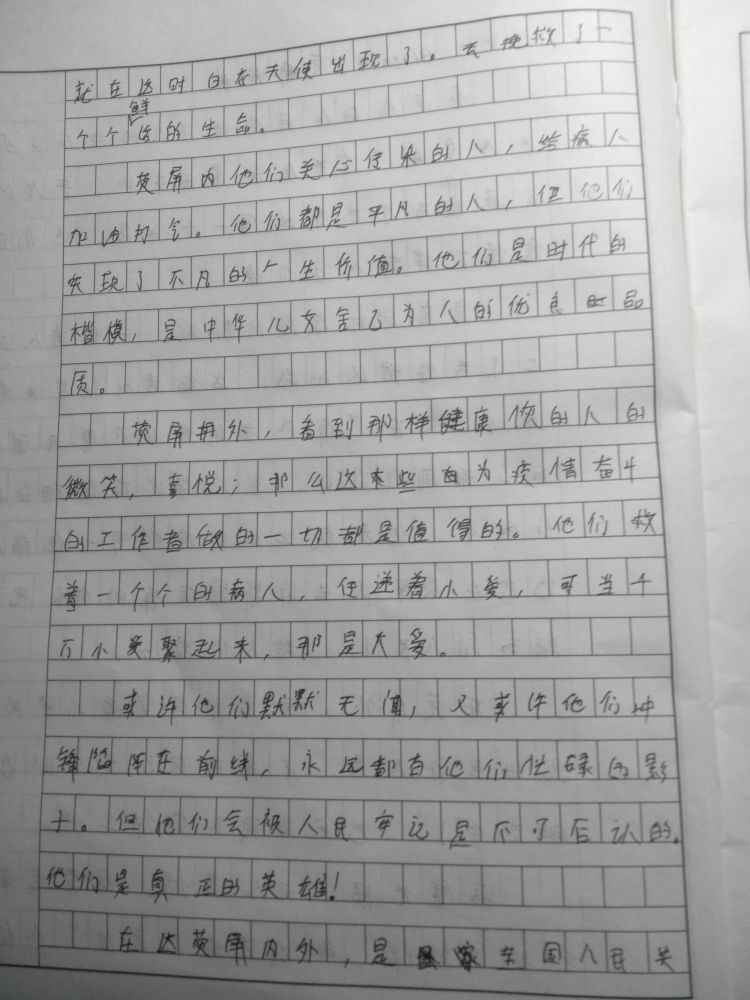 就在这时白衣天使出现了。去挽救了一
个个鲜活的生命。
荧屏内他们关心传染的人，给病人
加油打气。他们都是平凡的人，但他们
实现了不凡的人生价值。他们是时代的
楷模，是中华儿女舍己为人的优良品
质。
荧屏外，看到那样健康你的人的
微笑，喜悦；那么这些为疫情奋斗
的工作者做的一切都是值得的。他们救
着一个个的病人，传递着小爱，可当千
万小爱聚起来，那是大爱。
或许他们默默无闻，又或许他们冲
锋陷阵在前线，永远都有他们忙碌的影
子。但他们会被人民牢记是不可否认的。
他们是真正的英雄！
在这荧屏内外，是全国人民关